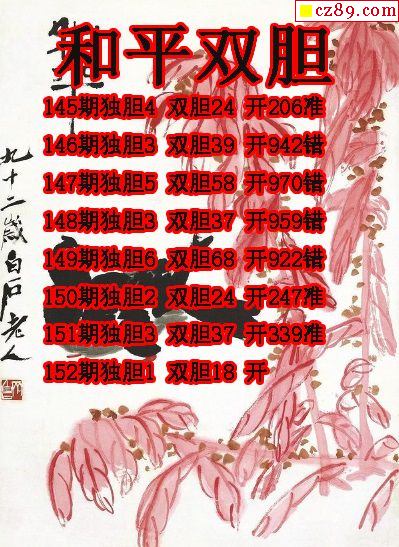 cz89.com
和平双胆
145期独胆4 双胆24 开206准
146期独胆3 双胆39 开942错
147期独胆5 双胆58 开970错
148期独胆3 双胆37 开959错
149期独胆6 双胆68 开922错
150期独胆2 双胆24 开247准
151期独胆3 双胆37 开339准
152期独胆1 双胆18 开
九十二岁白石老人